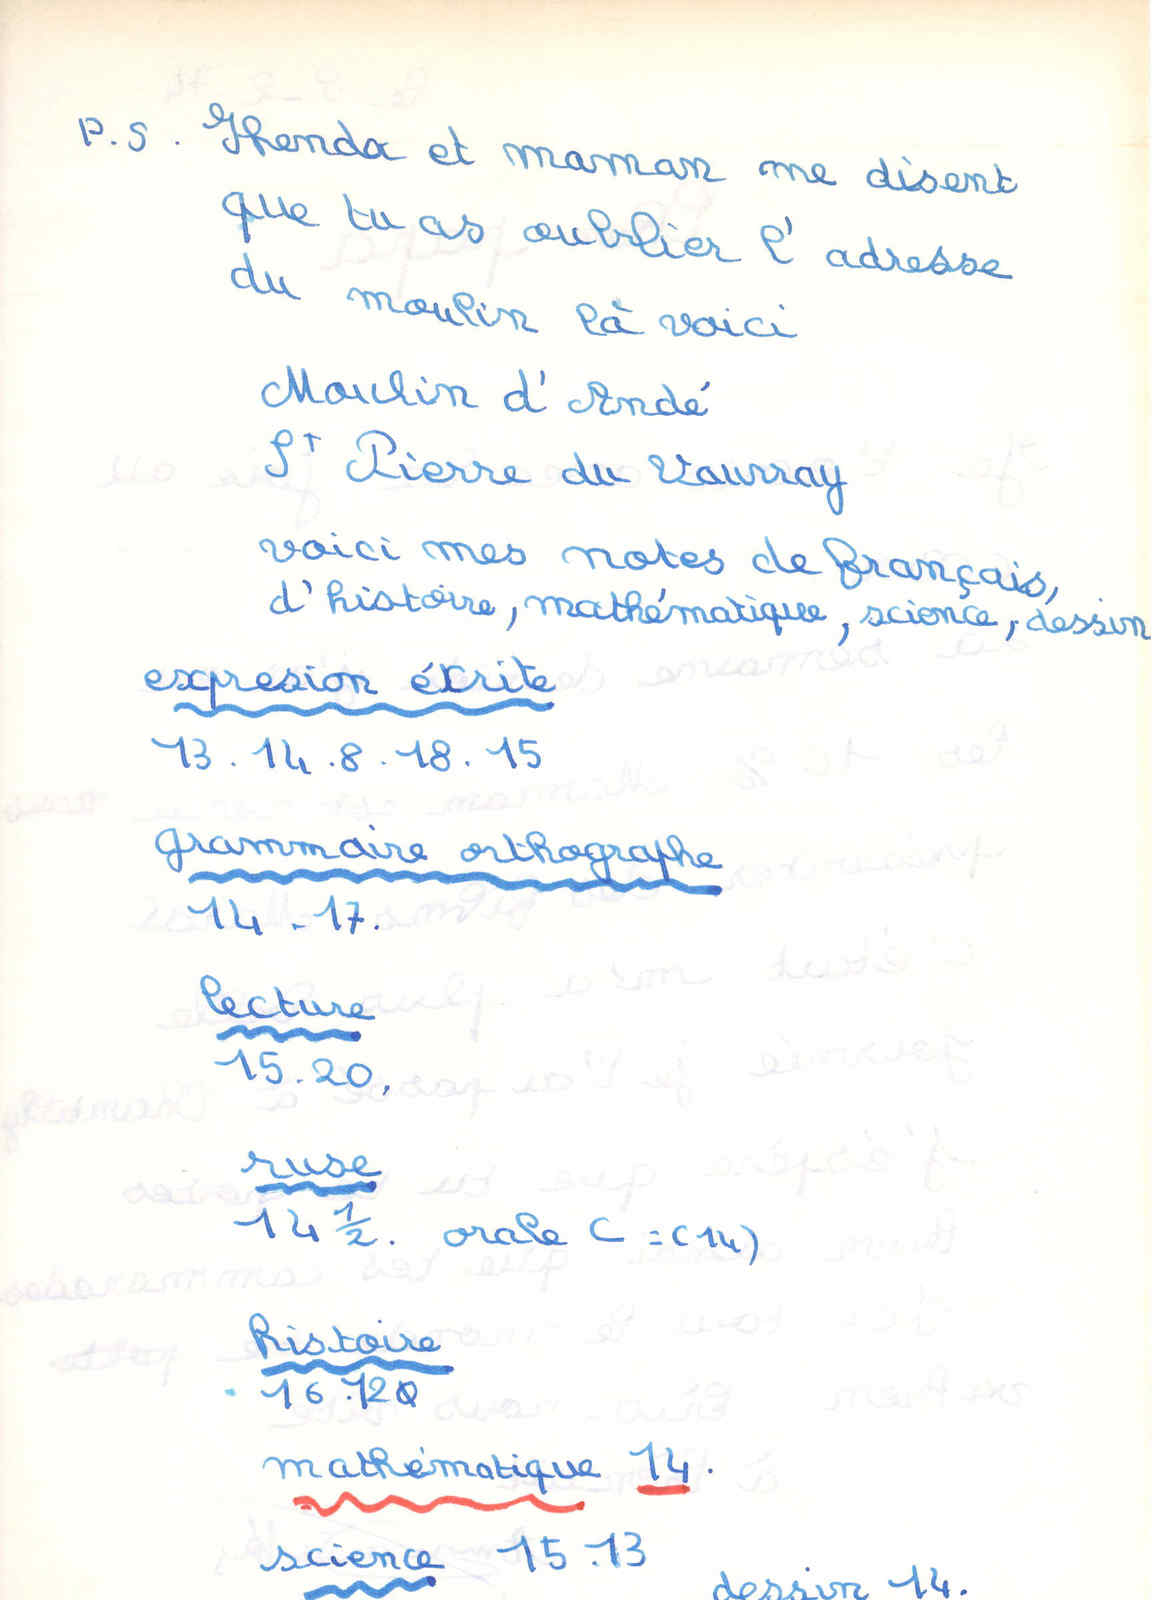 P.S. Ghenda et maman me disent
que tu as oublier l'adresse
du moulin là voici
Moulin d'Andé
St Pierre du Vauvray
voici mes notes de français,
d'histoire, mathématique, science, dessin
expresion éxrite
13.14.8.18.15
grammaire orthographe
14.17.
lecture
15.20,
ruse
14 1/2. orale C =(14)
histoire
16.12
mathématique 14.
science 15.13
dessin 14.